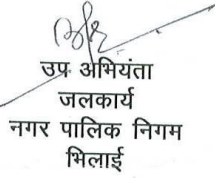 उप अभियंता
जलकार्य
नगर पालिक निगम
भिलाई